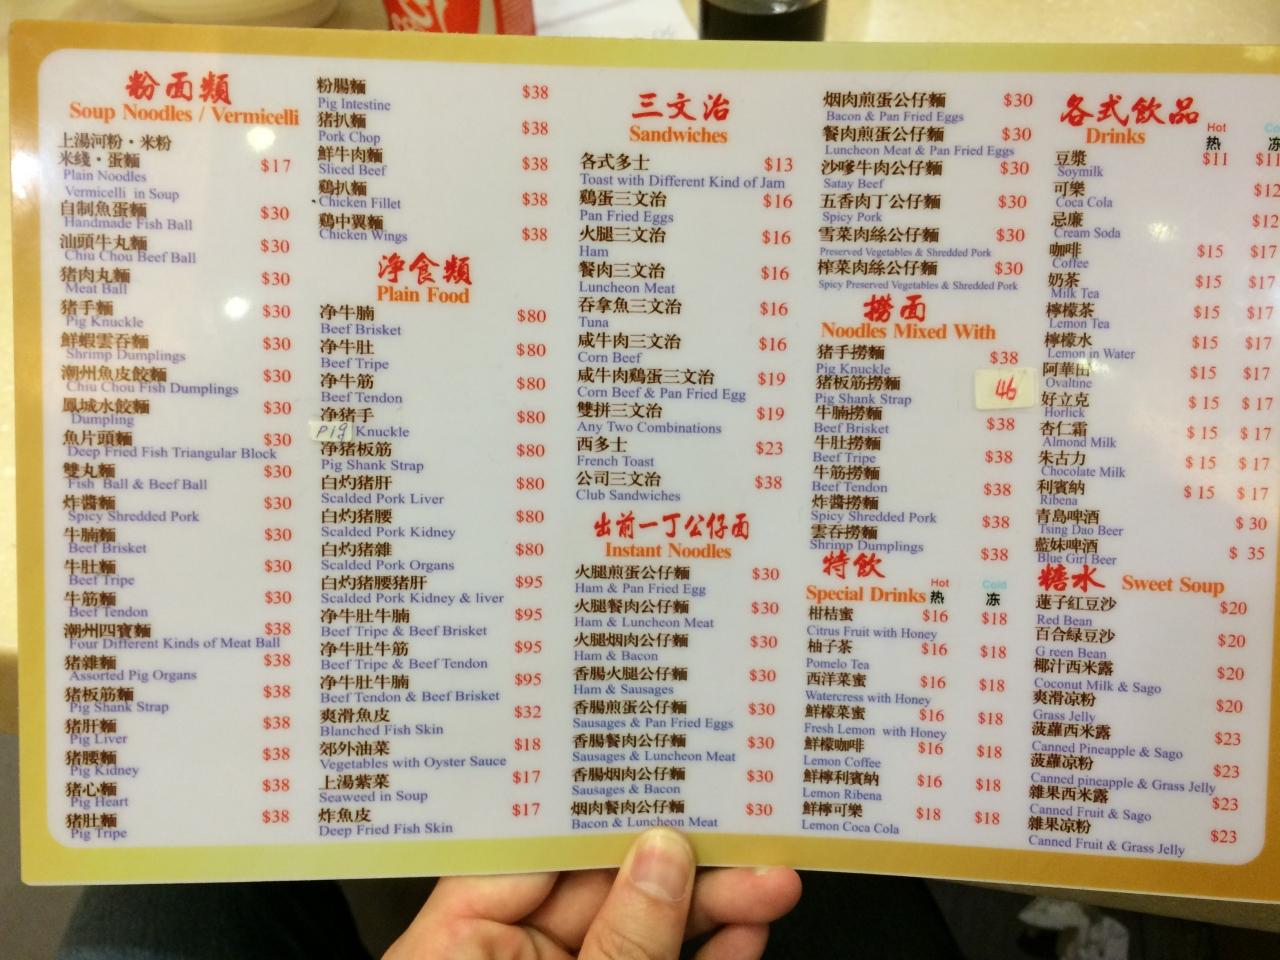 粉面類
Soup Noodles / Vermicelli
上湯河粉·米粉
米綫·蛋麵 $17
Plain Noodles
Vermicelli in Soup
自制魚蛋麵 $30
Handmade Fish Ball
汕頭牛丸麵 $30
Chiu Chou Beef Ball
猪肉丸麵 $30
Meat Ball
猪手麵 $30
Pig Knuckle
鮮蝦雲吞麵 $30
Shrimp Dumplings
潮州魚皮餃麵 $30
Chiu Chou Fish Dumplings
鳳城水餃麵 $30
Dumpling
魚片頭麵 $30
Deep Fried Fish Triangular Block
雙丸麵 $30
Fish Ball & Beef Ball
炸醬麵 $30
Spicy Shredded Pork
牛腩麵 $30
Beef Brisket
牛肚麵 $30
Beef Tripe
牛筋麵 $30
Beef Tendon
潮州四寶麵 $38
Four Different Kinds of Meat Ball
猪雜麵 $38
Assorted Pig Organs
猪板筋麵 $38
Pig Shank Strap
猪肝麵 $38
Pig Liver
猪腰麵 $38
Pig Kidney
猪心麵 $38
Pig Heart
猪肚麵 $38
Pig Tripe
粉腸麵 $38
Pig Intestine
猪扒麵 $38
Pork Chop
鮮牛肉麵 $38
Sliced Beef
鷄扒麵 $38
Chicken Fillet
鷄中翼麵 $38
Chicken Wings
净食類
Plain Food
净牛腩 $80
Beef Brisket
净牛肚 $80
Beef Tripe
净牛筋 $80
Beef Tendon
净猪手 $80
Pig Knuckle
净猪板筋 $80
Pig Shank Strap
白灼猪肝 $80
Scalded Pork Liver
白灼猪腰 $80
Scalded Pork Kidney
白灼猪雜 $80
Scalded Pork Organs
白灼猪腰猪肝 $95
Scalded Pork Kidney & liver
净牛肚牛腩 $95
Beef Tripe & Beef Brisket
净牛肚牛筋 $95
Beef Tripe & Beef Tendon
净牛肚牛腩 $95
Beef Tendon & Beef Brisket
爽滑魚皮 $32
Blanched Fish Skin
郊外油菜 $18
Vegetables with Oyster Sauce
上湯紫菜 $17
Seaweed in Soup
炸魚皮 $17
Deep Fried Fish Skin
三文治
Sandwiches
各式多士 $13
Toast with Different Kind of Jam
鷄蛋三文治 $16
Pan Fried Eggs
火腿三文治 $16
Ham
餐肉三文治 $16
Luncheon Meat
吞拿魚三文治 $16
Tuna
咸牛肉三文治 $16
Corn Beef
咸牛肉鷄蛋三文治 $19
Corn Beef & Pan Fried Egg
雙拼三文治 $19
Any Two Combinations
西多士 $23
French Toast
公司三文治 $38
Club Sandwiches
出前一丁公仔面
Instant Noodles
火腿煎蛋公仔麵 $30
Ham & Pan Fried Egg
火腿餐肉公仔麵 $30
Ham & Luncheon Meat
火腿烟肉公仔麵 $30
Ham & Bacon
香腸火腿公仔麵 $30
Ham & Sausages
香腸煎蛋公仔麵 $30
Sausages & Pan Fried Eggs
香腸餐肉公仔麵 $30
Sausages & Luncheon Meat
香腸烟肉公仔麵 $30
Sausages & Bacon
烟肉餐肉公仔麵 $30
Bacon & Luncheon Meat
烟肉煎蛋公仔麵 $30
Bacon & Pan Fried Eggs
餐肉煎蛋公仔麵 $30
Luncheon Meat & Pan Fried Eggs
沙嗲牛肉公仔麵 $30
Satay Beef
五香肉丁公仔麵 $30
Spicy Pork
雪菜肉絲公仔麵 $30
Preserved Vegetables & Shredded Pork
榨菜肉絲公仔麵 $30
Spicy Preserved Vegetables & Shredded Pork
撈面
Noodles Mixed With
猪手撈麵 $38
Pig Knuckle
猪板筋撈麵 46
Pig Shank Strap
牛腩撈麵 $38
Beef Brisket
牛肚撈麵 $38
Beef Tripe
牛筋撈麵 $38
Beef Tendon
炸醬撈麵 $38
Spicy Shredded Pork
雲吞撈麵 $38
Shrimp Dumplings
特飲 Hot Cold
Special Drinks 热 冻
柑桔蜜 $16 $18
Citrus Fruit with Honey
柚子茶 $16 $18
Pomelo Tea
西洋菜蜜 $16 $18
Watercress with Honey
鮮檬菜蜜 $16 $18
Fresh Lemon with Honey
鮮檬咖啡 $16 $18
Lemon Coffee
鮮檸利賓納 $16 $18
Lemon Ribena
鮮檸可樂 $18 $18
Lemon Coca Cola
各式飲品 Hot
Drinks 热 冻
豆漿 $11 $11
Soymilk
可樂 $12
Coca Cola
忌廉 $12
Cream Soda
咖啡 $15 $17
Coffee
奶茶 $15 $17
Milk Tea
檸檬茶 $15 $17
Lemon Tea
檸檬水 $15 $17
Lemon in Water
阿華田 $15 $17
Ovaltine
好立克 $15 $17
Horlick
杏仁霜 $15 $17
Almond Milk
朱古力 $15 $17
Chocolate Milk
利賓納 $15 $17
Ribena
青島啤酒 $30
Tsing Dao Beer
藍妹啤酒 $35
Blue Girl Beer
糖水 Sweet Soup
蓮子紅豆沙 $20
Red Bean
百合緑豆沙 $20
G reen Bean
椰汁西米露 $20
Coconut Milk & Sago
爽滑凉粉 $20
Grass Jelly
菠蘿西米露 $23
Canned Pineapple & Sago
菠蘿凉粉 $23
Canned pineapple & Grass Jelly
雜果西米露 $23
Canned Fruit & Sago
雜果凉粉 $23
Canned Fruit & Grass Jelly